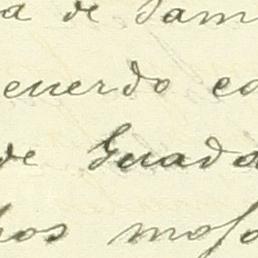 a de Sam
cuerdo co
de Guada
hos moso